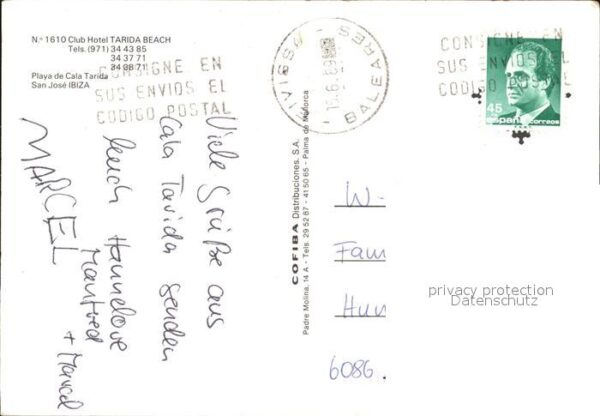 N.º 1610 Club Hotel TARIDA BEACH
Tels. (971) 34 43 85
34 37 71
34 08 71
Playa de Cala Tarida
San José IBIZA
CONSIGNE EN
SUS ENVIOS EL
CODIGO POSTAL
BALEARES
CONSIGNE EN
SUS ENVIOS EL
CODIGO POSTAL
45
españa correos
Viele Grüße aus
Cala Tarida senden
Euch Hannelore
Manfred
+ Marcel
MARCEL
COFIBA Distribuciones, S.A.
Padre Molina, 14 A - Tels. 29 52 87 - 41 50 65 - Palma de Mallorca
W-
Fam
Hun
6086
privacy protection
Datenschutz